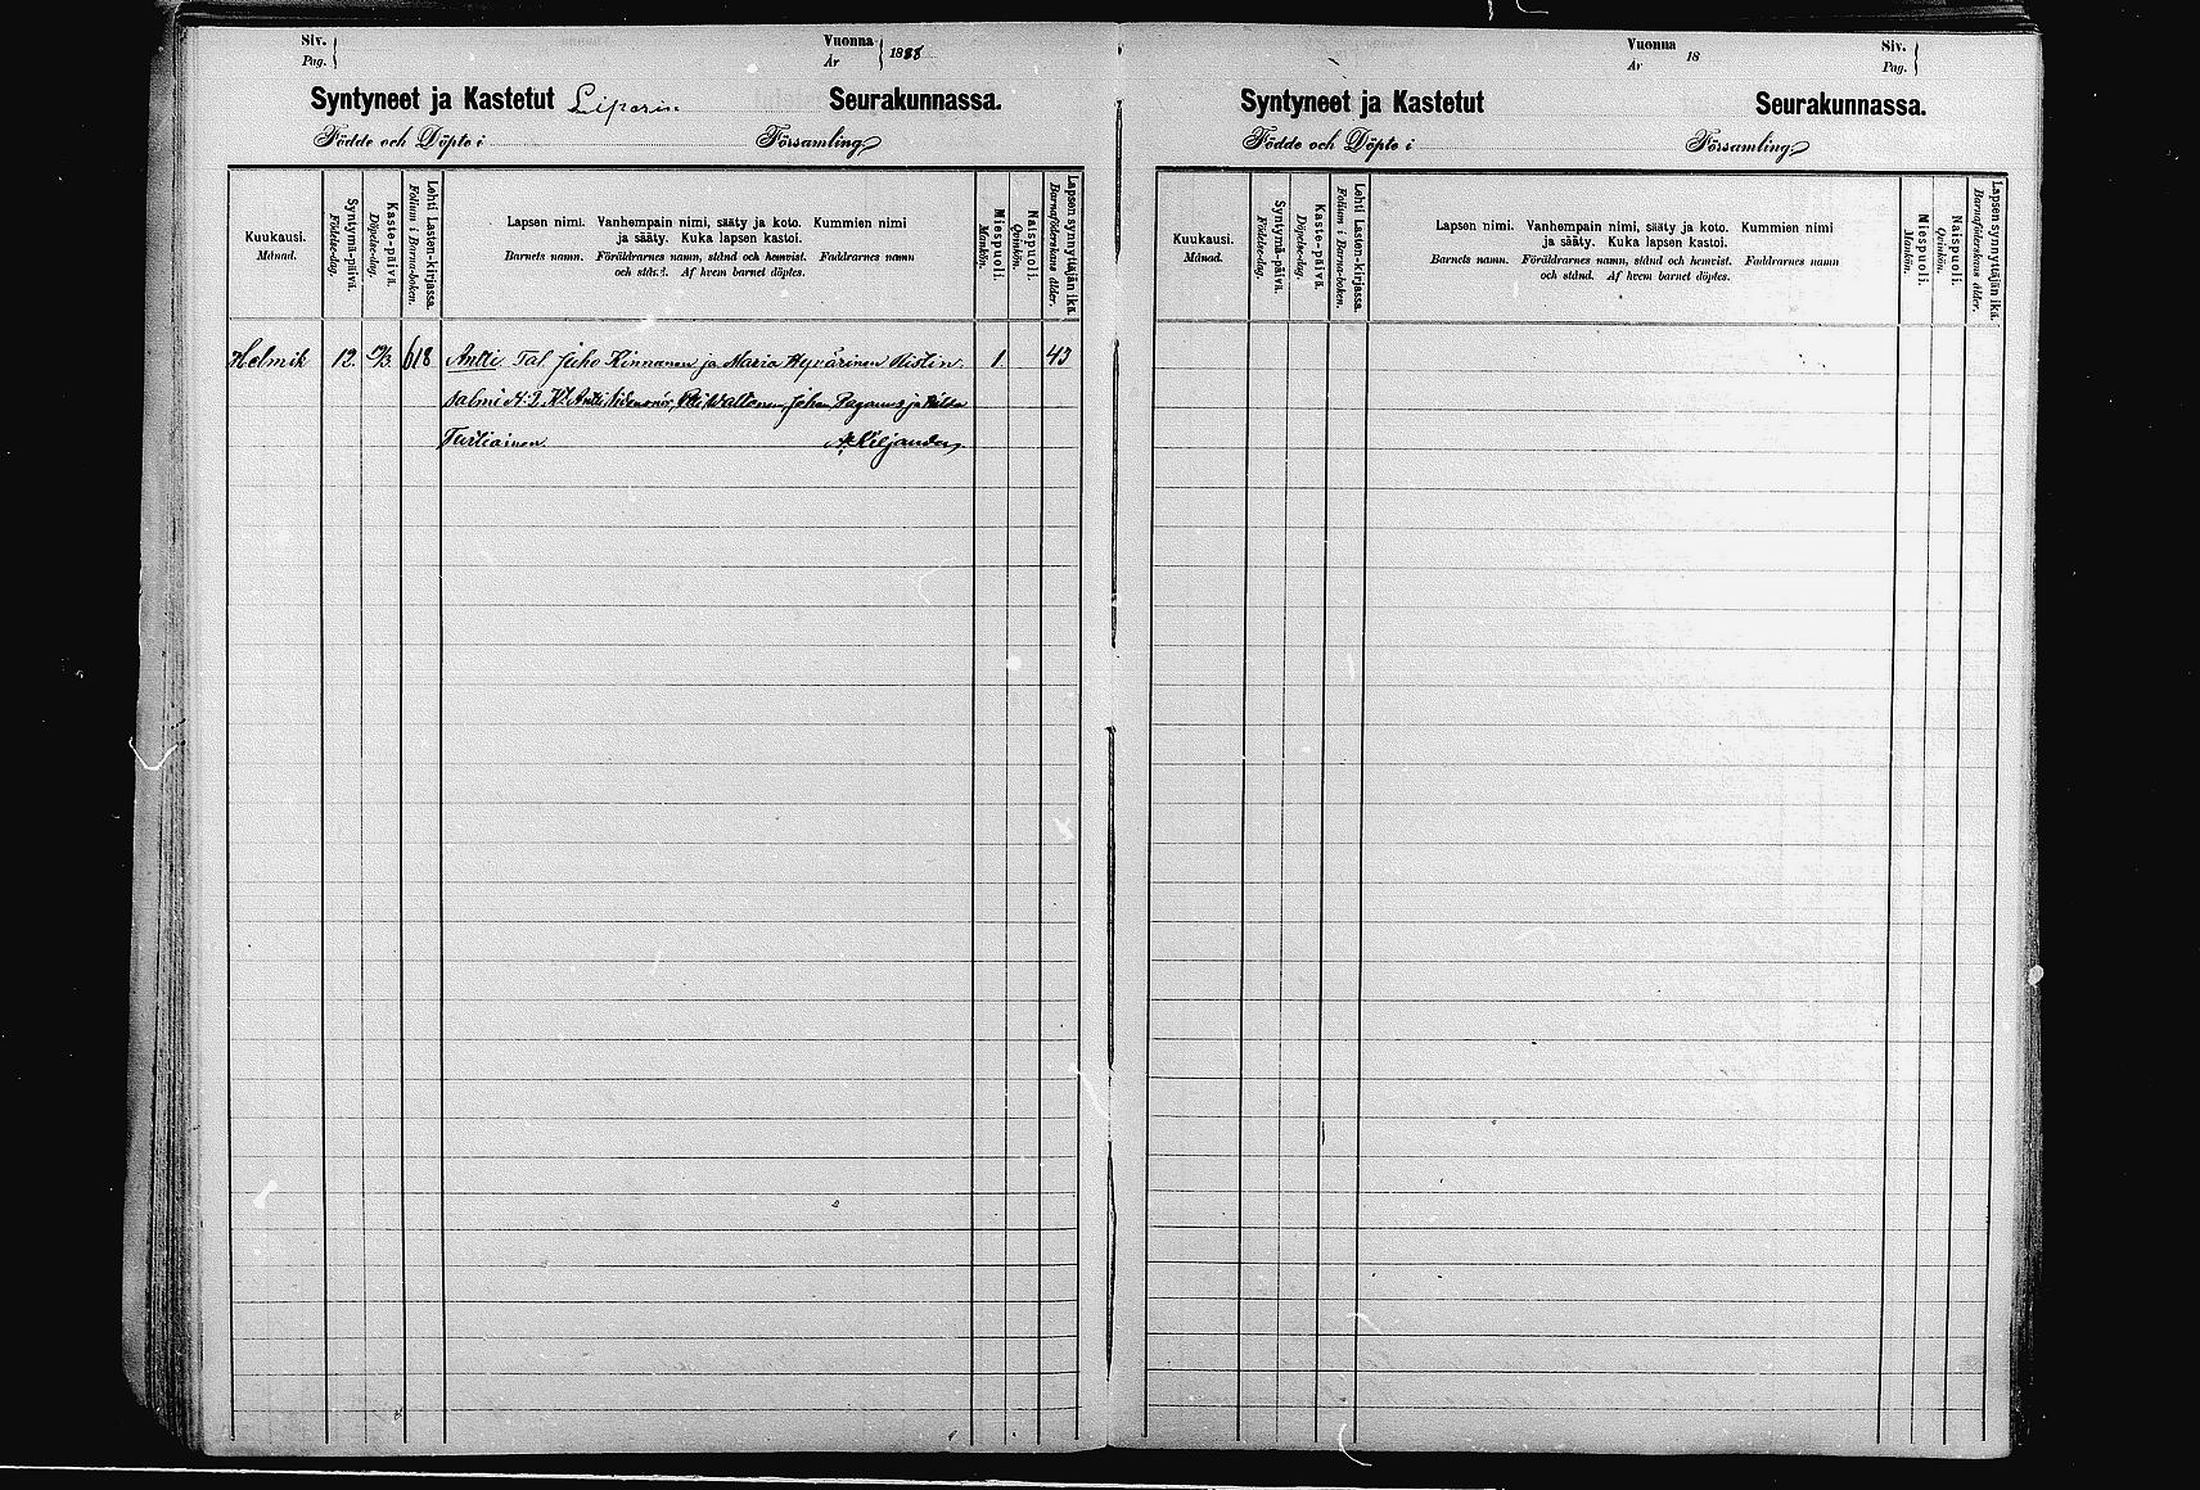 Siv.
Pag.
Vuonna
År
1888
Syntyneet ja Kastetut Liperin Seurakunnassa.
Födde och Döpte i Församling.
Kuukausi.
Månad.
Syntymä-päivä.
Födelse-dag.
Kaste-päivä.
Döpelse-dag.
Lehti Lasten-kirjassa.
Folium i Barna-boken.
Lapsen nimi. Vanhempain nimi, sääty ja koto. Kummien nimi
ja sääty. Kuka lapsen kastoi.
Barnets namn. Föräldrarnes namn, stånd och hemvist. Faddrarnes namn
och stånd. Af hvem barnet döptes.
Miespuoli.
Mankön.
Naispuoli.
Qvinkön.
Lapsen synnyttäjän ikä.
Barnaföderskans ålder.
Helmik 12. 618 Antti. Tal. Juho Kinnanen ja Maria Hyvärinen Ristin 1. 43
salmi N:2. Antti Waltonen, Johan Paganus ja Hilda
Turtiainen. A. Kiljander,
Vuonna
År
18
Siv.
Pag.
Syntyneet ja Kastetut Seurakunnassa.
Födde och Döpte i Församling.
Kuukausi.
Månad.
Syntymä-päivä.
Födelse-dag.
Kaste-päivä.
Döpelse-dag.
Lehti Lasten-kirjassa.
Folium i Barna-boken.
Lapsen nimi. Vanhempain nimi, sääty ja koto. Kummien nimi
ja sääty. Kuka lapsen kastoi.
Barnets namn. Föräldrarnes namn, stånd och hemvist. Faddrarnes namn
och stånd. Af hvem barnet döptes.
Miespuoli.
Mankön.
Naispuoli.
Qvinkön.
Lapsen synnyttäjän ikä.
Barnaföderskans ålder.